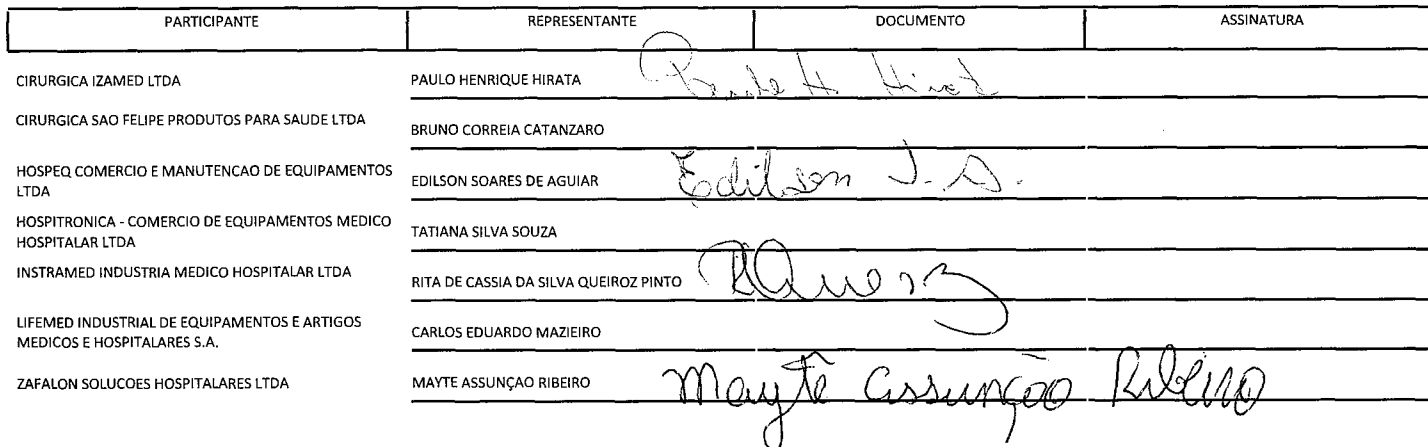 PARTICIPANTE REPRESENTANTE DOCUMENTO ASSINATURA
CIRURGICA IZAMED LTDA PAULO HENRIQUE HIRATA
CIRURGICA SAO FELIPE PRODUTOS PARA SAUDE LTDA BRUNO CORREIA CATANZARO
HOSPEQ COMERCIO E MANUTENCAO DE EQUIPAMENTOS
LTDA EDILSON SOARES DE AGUIAR Edilson J. A.
HOSPITRONICA - COMERCIO DE EQUIPAMENTOS MEDICO
HOSPITALAR LTDA TATIANA SILVA SOUZA
INSTRAMED INDUSTRIA MEDICO HOSPITALAR LTDA RITA DE CASSIA DA SILVA QUEIROZ PINTO
LIFEMED INDUSTRIAL DE EQUIPAMENTOS E ARTIGOS
MEDICOS E HOSPITALARES S.A. CARLOS EDUARDO MAZIEIRO
ZAFALON SOLUCOES HOSPITALARES LTDA MAYTE ASSUNÇAO RIBEIRO Maytê Assunção Ribeiro